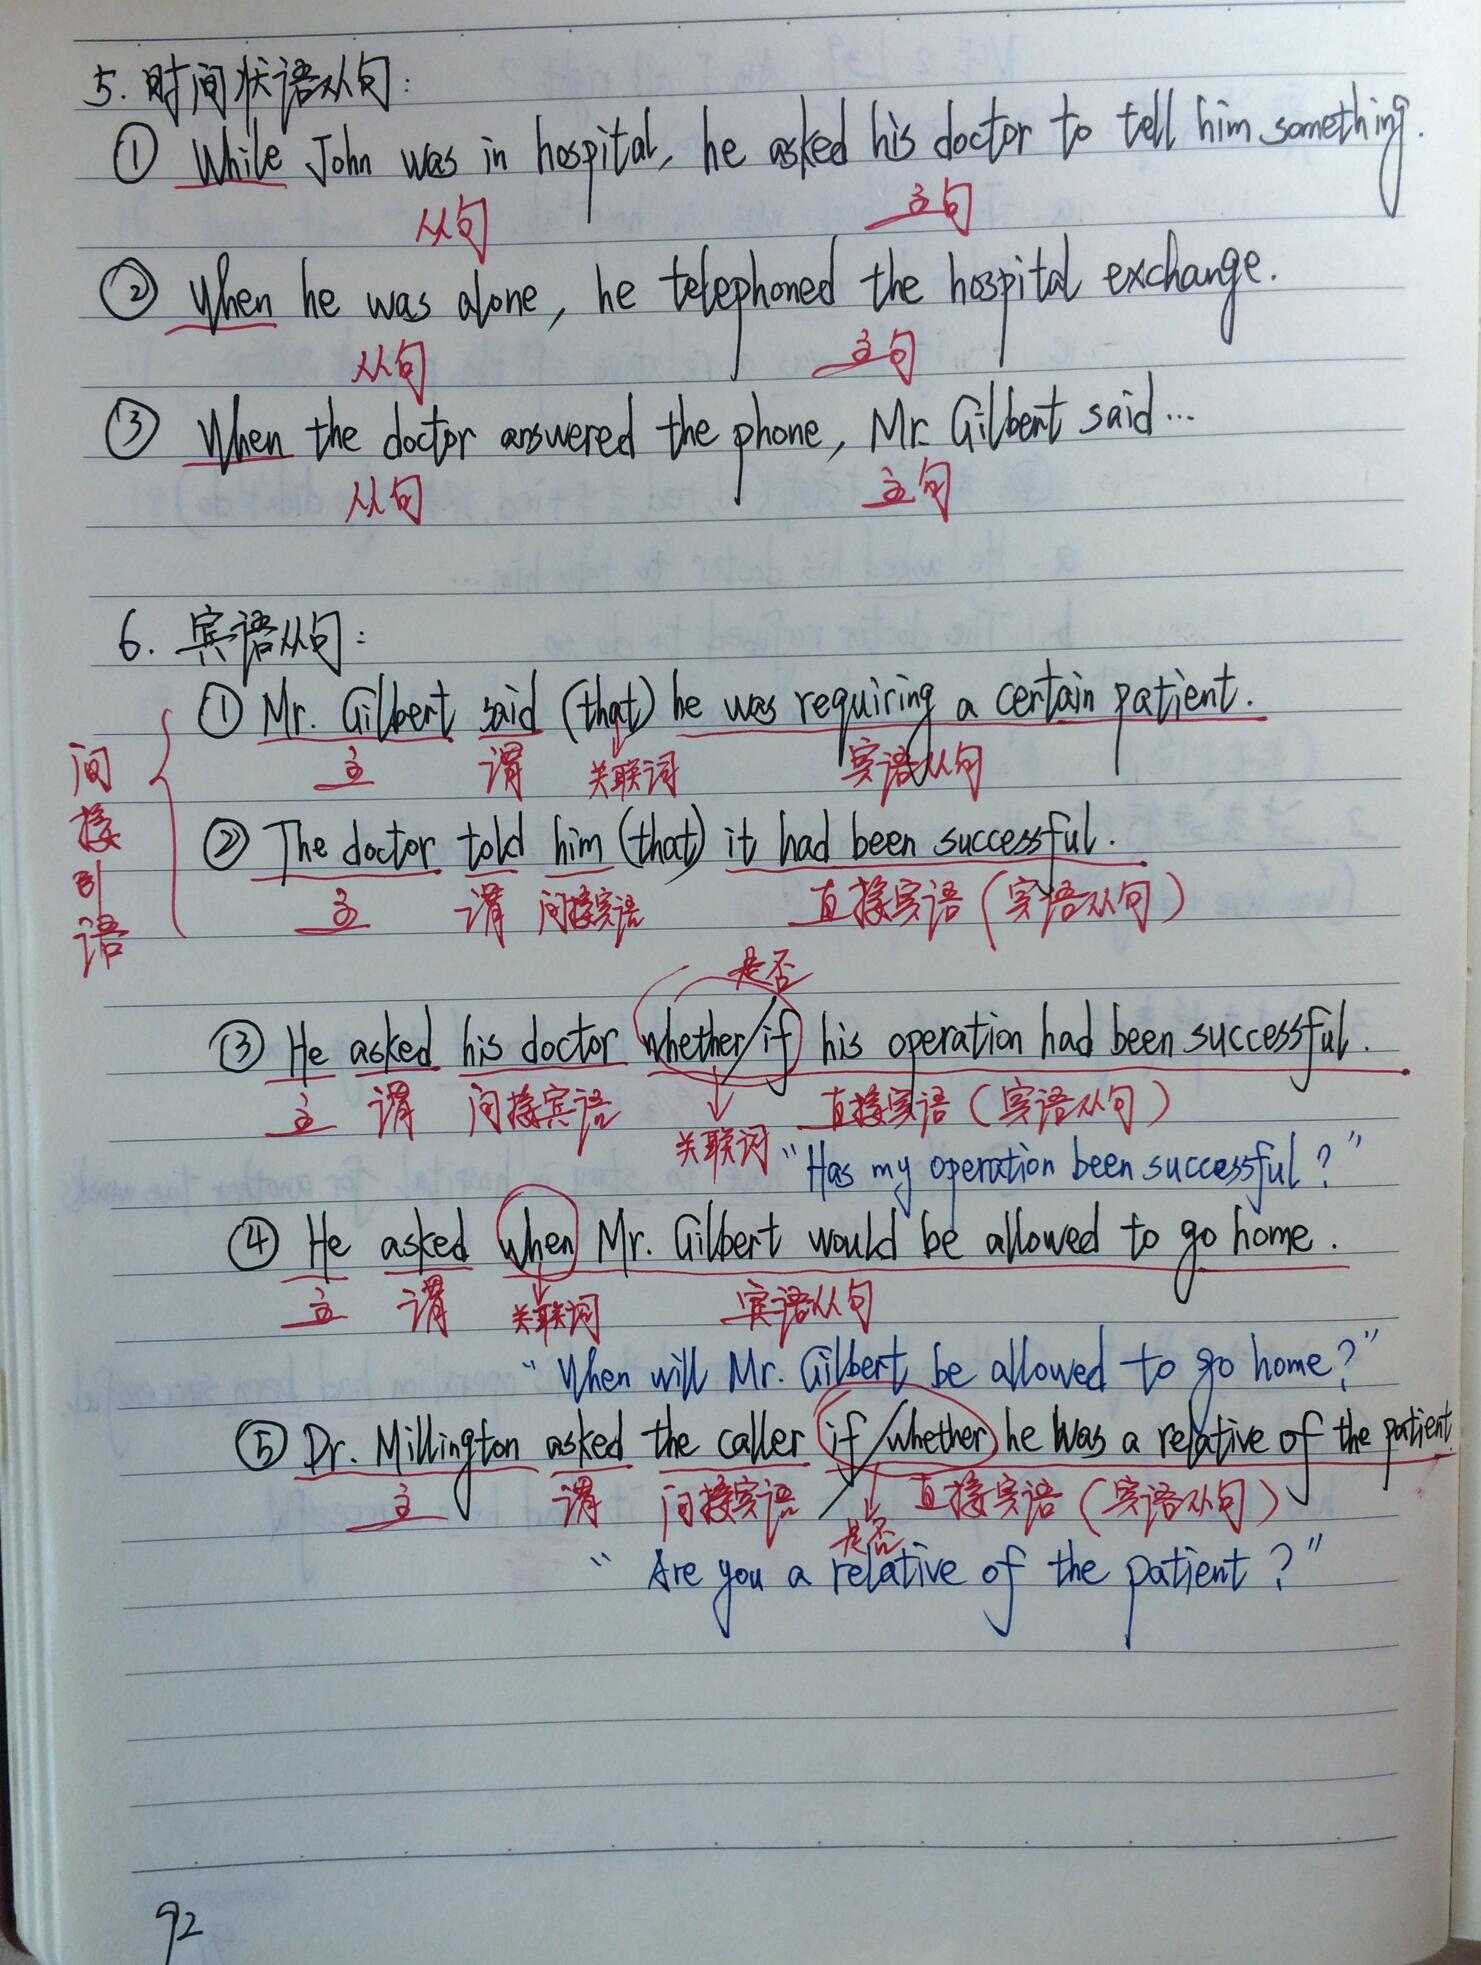 5. 时间状语从句:
① While John was in hospital, he asked his doctor to tell him something.
从句 主句
② When he was alone, he telephoned the hospital exchange.
从句 主句
③ When the doctor answered the phone, Mr. Gilbert said...
从句 主句
6. 宾语从句:
间接引语
① Mr. Gilbert said (that) he was requiring a certain patient.
主 谓 关联词 宾语从句
② The doctor told him (that) it had been successful.
主 谓 间接宾语 直接宾语(宾语从句)
是否
③ He asked his doctor whether/if his operation had been successful.
主 谓 间接宾语 关联词 直接宾语(宾语从句)
"Has my operation been successful?"
④ He asked when Mr. Gilbert would be allowed to go home.
主 谓 关联词 宾语从句
"When will Mr. Gilbert be allowed to go home?"
⑤ Dr. Millington asked the caller if/whether he was a relative of the patient.
主 谓 间接宾语 是否 直接宾语(宾语从句)
"Are you a relative of the patient?"
92